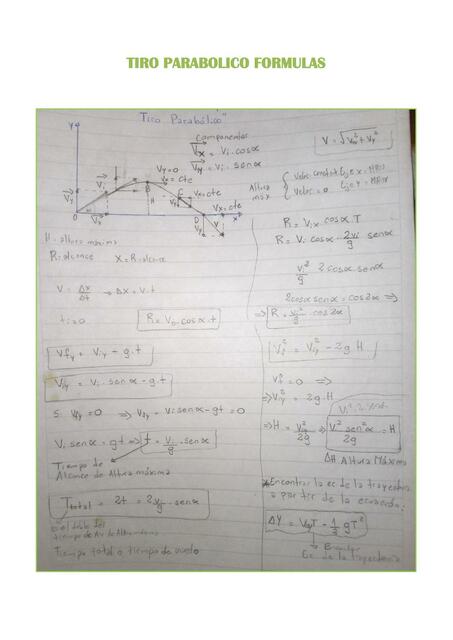 TIRO PARABOLICO FORMULAS
Tiro Parabólico"
Componentes
Vx = Vi . cosα
Vy = Vi . senα
Vy=0
Vx=cte
Vx=cte
Vx=cte
H
H = altura máxima
R=alcance X=R=alcance
V = Δx/Δt ⇒ Δx = V.t
ti=0
R = Vo cosα . t
Vfy = Viy - g.t
Vfy = Vi . senα - g.t
Si Vfy=0 ⇒ Vfy = Vi senα - gt = 0
Vi senα = gt ⇒ t = Vi/g . senα
Tiempo de
Alcance de Altura máxima
Ttotal = 2t = 2Vi/g . senα
es el doble del
Tiempo total o tiempo de vuelo
V = √Vx²+Vy²
Altura
max
R = Vix cosα T
R = Vi cosα 2Vi/g senα
Vi²/g 2cosα.senα
2cosα senα = cos2α ⇒
⇒ R = Vi²/g . cos2α
Vf² = Viy² - 2gH
Vf² = 0 ⇒
⇒ Viy² = 2g.H
⇒ H = Viy²/2g ⇒ Vi² sen²α/2g = H
ΔH Altura Máxima
* Encontrar la ec de la trayectoria
a partir de la ecuación:
ΔY = VoyT - 1/2 gT²
Ec de la trayectoria